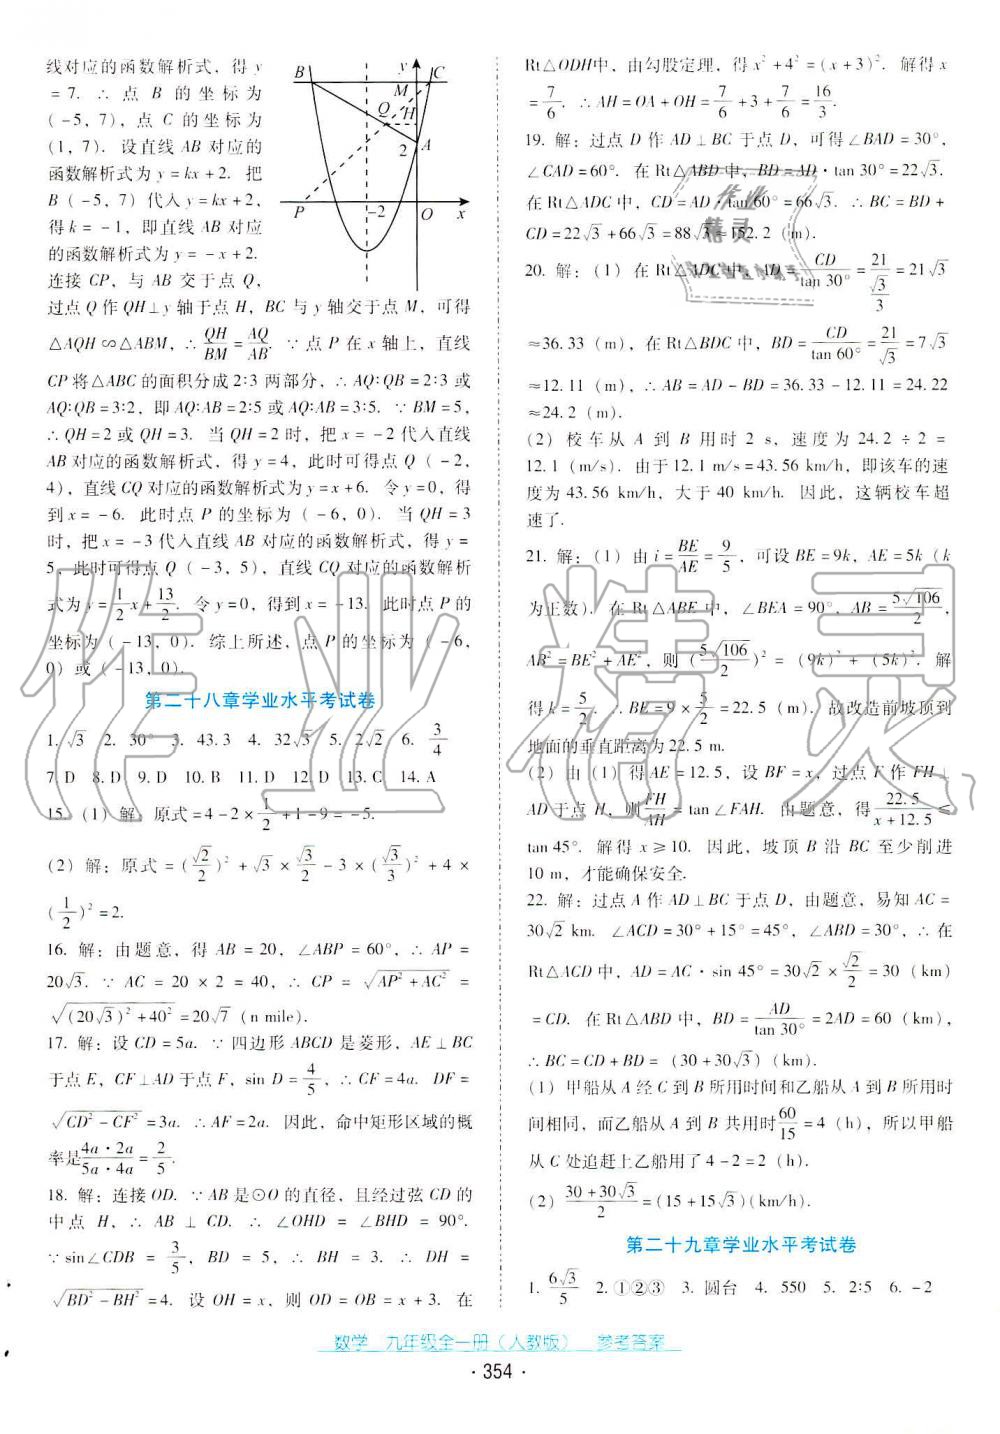 线对应的函数解析式，得 y
= 7. ∴ 点 B 的坐标为
(-5, 7)，点 C 的坐标为
(1, 7). 设直线 AB 对应的
函数解析式为 y = kx + 2. 把
B (-5, 7) 代入 y = kx + 2,
得 k = -1，即直线 AB 对应
的函数解析式为 y = -x + 2.
连接 CP，与 AB 交于点 Q,
B y C
M
Q H
2 A
P -2 O x
过点 Q 作 QH⊥y 轴于点 H，BC 与 y 轴交于点 M，可得
△AQH∽△ABM，∴ QH/BM = AQ/AB. ∵ 点 P 在 x 轴上，直线
CP 将△ABC 的面积分成 2∶3 两部分，∴ AQ∶QB = 2∶3 或
AQ∶QB = 3∶2，即 AQ∶AB = 2∶5 或 AQ∶AB = 3∶5. ∵ BM = 5,
∴ QH = 2 或 QH = 3. 当 QH = 2 时，把 x = -2 代入直线
AB 对应的函数解析式，得 y = 4，此时可得点 Q (-2,
4)，直线 CQ 对应的函数解析式为 y = x + 6. 令 y = 0，得
到 x = -6. 此时点 P 的坐标为 (-6, 0). 当 QH = 3
时，把 x = -3 代入直线 AB 对应的函数解析式，得 y =
5，此时可得点 Q (-3, 5)，直线 CQ 对应的函数解析
式为 y = 1/2 x + 13/2. 令 y = 0，得到 x = -13. 此时点 P 的
坐标为 (-13, 0). 综上所述，点 P 的坐标为 (-6,
0) 或 (-13, 0).
第二十八章学业水平考试卷
1. √3 2. 30° 3. 43.3 4. 32√3 5. 2√2 6. 3/4
7. D 8. D 9. D 10. B 11. D 12. D 13. C 14. A
15. (1) 解：原式 = 4 - 2 × 1/2 + 1 - 9 = -5.
(2) 解：原式 = (√2/2)² + √3 × √3/2 - 3 × (√3/3)² + 4 ×
(1/2)² = 2.
16. 解：由题意，得 AB = 20，∠ABP = 60°，∴ AP =
20√3. ∵ AC = 20 × 2 = 40，∴ CP = √(AP² + AC²) =
√((20√3)² + 40²) = 20√7 (n mile).
17. 解：设 CD = 5a. ∵ 四边形 ABCD 是菱形，AE⊥BC
于点 E，CF⊥AD 于点 F，sin D = 4/5，∴ CF = 4a. DF =
√(CD² - CF²) = 3a. ∴ AF = 2a. 因此，命中矩形区域的概
率是 4a·2a/5a·4a = 2/5.
18. 解：连接 OD. ∵ AB 是⊙O 的直径，且经过弦 CD 的
中点 H，∴ AB⊥CD. ∴ ∠OHD = ∠BHD = 90°.
∵ sin∠CDB = 3/5，BD = 5，∴ BH = 3. ∴ DH =
√(BD² - BH²) = 4. 设 OH = x，则 OD = OB = x + 3. 在
Rt△ODH 中，由勾股定理，得 x² + 4² = (x + 3)². 解得 x
= 7/6. ∴ AH = OA + OH = 7/6 + 3 + 7/6 = 16/3.
19. 解：过点 D 作 AD⊥BC 于点 D，可得∠BAD = 30°,
∠CAD = 60°. 在 Rt△ABD 中，BD = AD·tan 30° = 22√3.
在 Rt△ADC 中，CD = AD·tan 60° = 66√3. ∴ BC = BD +
CD = 22√3 + 66√3 = 88√3 ≈ 152.2 (m).
20. 解：(1) 在 Rt△ADC 中，AD = CD/tan 30° = 21/(√3/3) = 21√3
≈ 36.33 (m)，在 Rt△BDC 中，BD = CD/tan 60° = 21/√3 = 7√3
≈ 12.11 (m)，∴ AB = AD - BD = 36.33 - 12.11 = 24.22
≈ 24.2 (m).
(2) 校车从 A 到 B 用时 2 s，速度为 24.2 ÷ 2 =
12.1 (m/s). 由于 12.1 m/s = 43.56 km/h，即该车的速
度为 43.56 km/h，大于 40 km/h. 因此，这辆校车超
速了.
21. 解：(1) 由 i = BE/AE = 9/5，可设 BE = 9k，AE = 5k (k
为正数). 在 Rt△ABE 中，∠BEA = 90°，AB = 5√106/2,
AB² = BE² + AE²，则 (5√106/2)² = (9k)² + (5k)². 解
得 k = 5/2. ∴ BE = 9 × 5/2 = 22.5 (m). 故改造前坡顶到
地面的垂直距离为 22.5 m.
(2) 由 (1) 得 AE = 12.5，设 BF = x，过点 F 作 FH⊥
AD 于点 H，则 FH/AH = tan∠FAH. 由题意，得 22.5/(x + 12.5) ≤
tan 45°. 解得 x ≥ 10. 因此，坡顶 B 沿 BC 至少削进
10 m，才能确保安全.
22. 解：过点 A 作 AD⊥BC 于点 D，由题意，易知 AC =
30√2 km. ∠ACD = 30° + 15° = 45°，∠ABD = 30°，∴ 在
Rt△ACD 中，AD = AC·sin 45° = 30√2 × √2/2 = 30 (km)
= CD. 在 Rt△ABD 中，BD = AD/tan 30° = 2AD = 60 (km),
∴ BC = CD + BD = (30 + 30√3) (km).
(1) 甲船从 A 经 C 到 B 所用时间和乙船从 A 到 B 所用时
间相同，而乙船从 A 到 B 共用时 60/15 = 4 (h)，所以甲船
从 C 处追赶上乙船用了 4 - 2 = 2 (h).
(2) (30 + 30√3)/2 = (15 + 15√3) (km/h).
第二十九章学业水平考试卷
1. 6√3/5 2. ①②③ 3. 圆台 4. 550 5. 2∶5 6. -2
数学 九年级全一册（人教版） 参考答案
· 354 ·
作业精灵